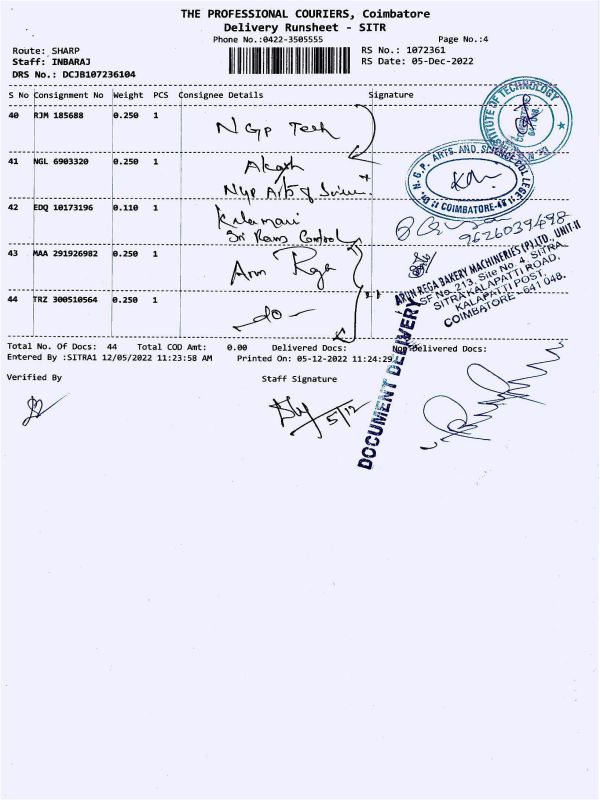 THE PROFESSIONAL COURIERS, Coimbatore
Delivery Runsheet - SITR
Phone No.:0422-3505555
Page No.:4
Route: SHARP
RS No.: 1072361
Staff: INBARAJ
RS Date: 05-Dec-2022
DRS No.: DCJB107236104
S No Consignment No Weight PCS Consignee Details Signature
40 RJM 185688 0.250 1 NGP Tech
41 NGL 6903320 0.250 1 Akash
NGP Arts & Science
42 EDQ 10173196 0.110 1
Sri Ram Control
9626039498
43 MAA 291926982 0.250 1 Arun Rega
44 TRZ 300510564 0.250 1 -do-
INSTITUTE OF TECHNOLOGY
Dr. N.G.P. ARTS AND SCIENCE COLLEGE
COIMBATORE-48
ARUN REGA BAKERY MACHINERIES (P) LTD., UNIT-II
SF No. 213, Site No. 4, SITRA,
SITRA KALAPATTI ROAD,
KALAPATTI POST,
COIMBATORE - 641 048.
DOCUMENT DELIVERY
Total No. Of Docs: 44 Total COD Amt: 0.00 Delivered Docs: Non Delivered Docs:
Entered By :SITRA1 12/05/2022 11:23:58 AM Printed On: 05-12-2022 11:24:29
Verified By Staff Signature
5/12